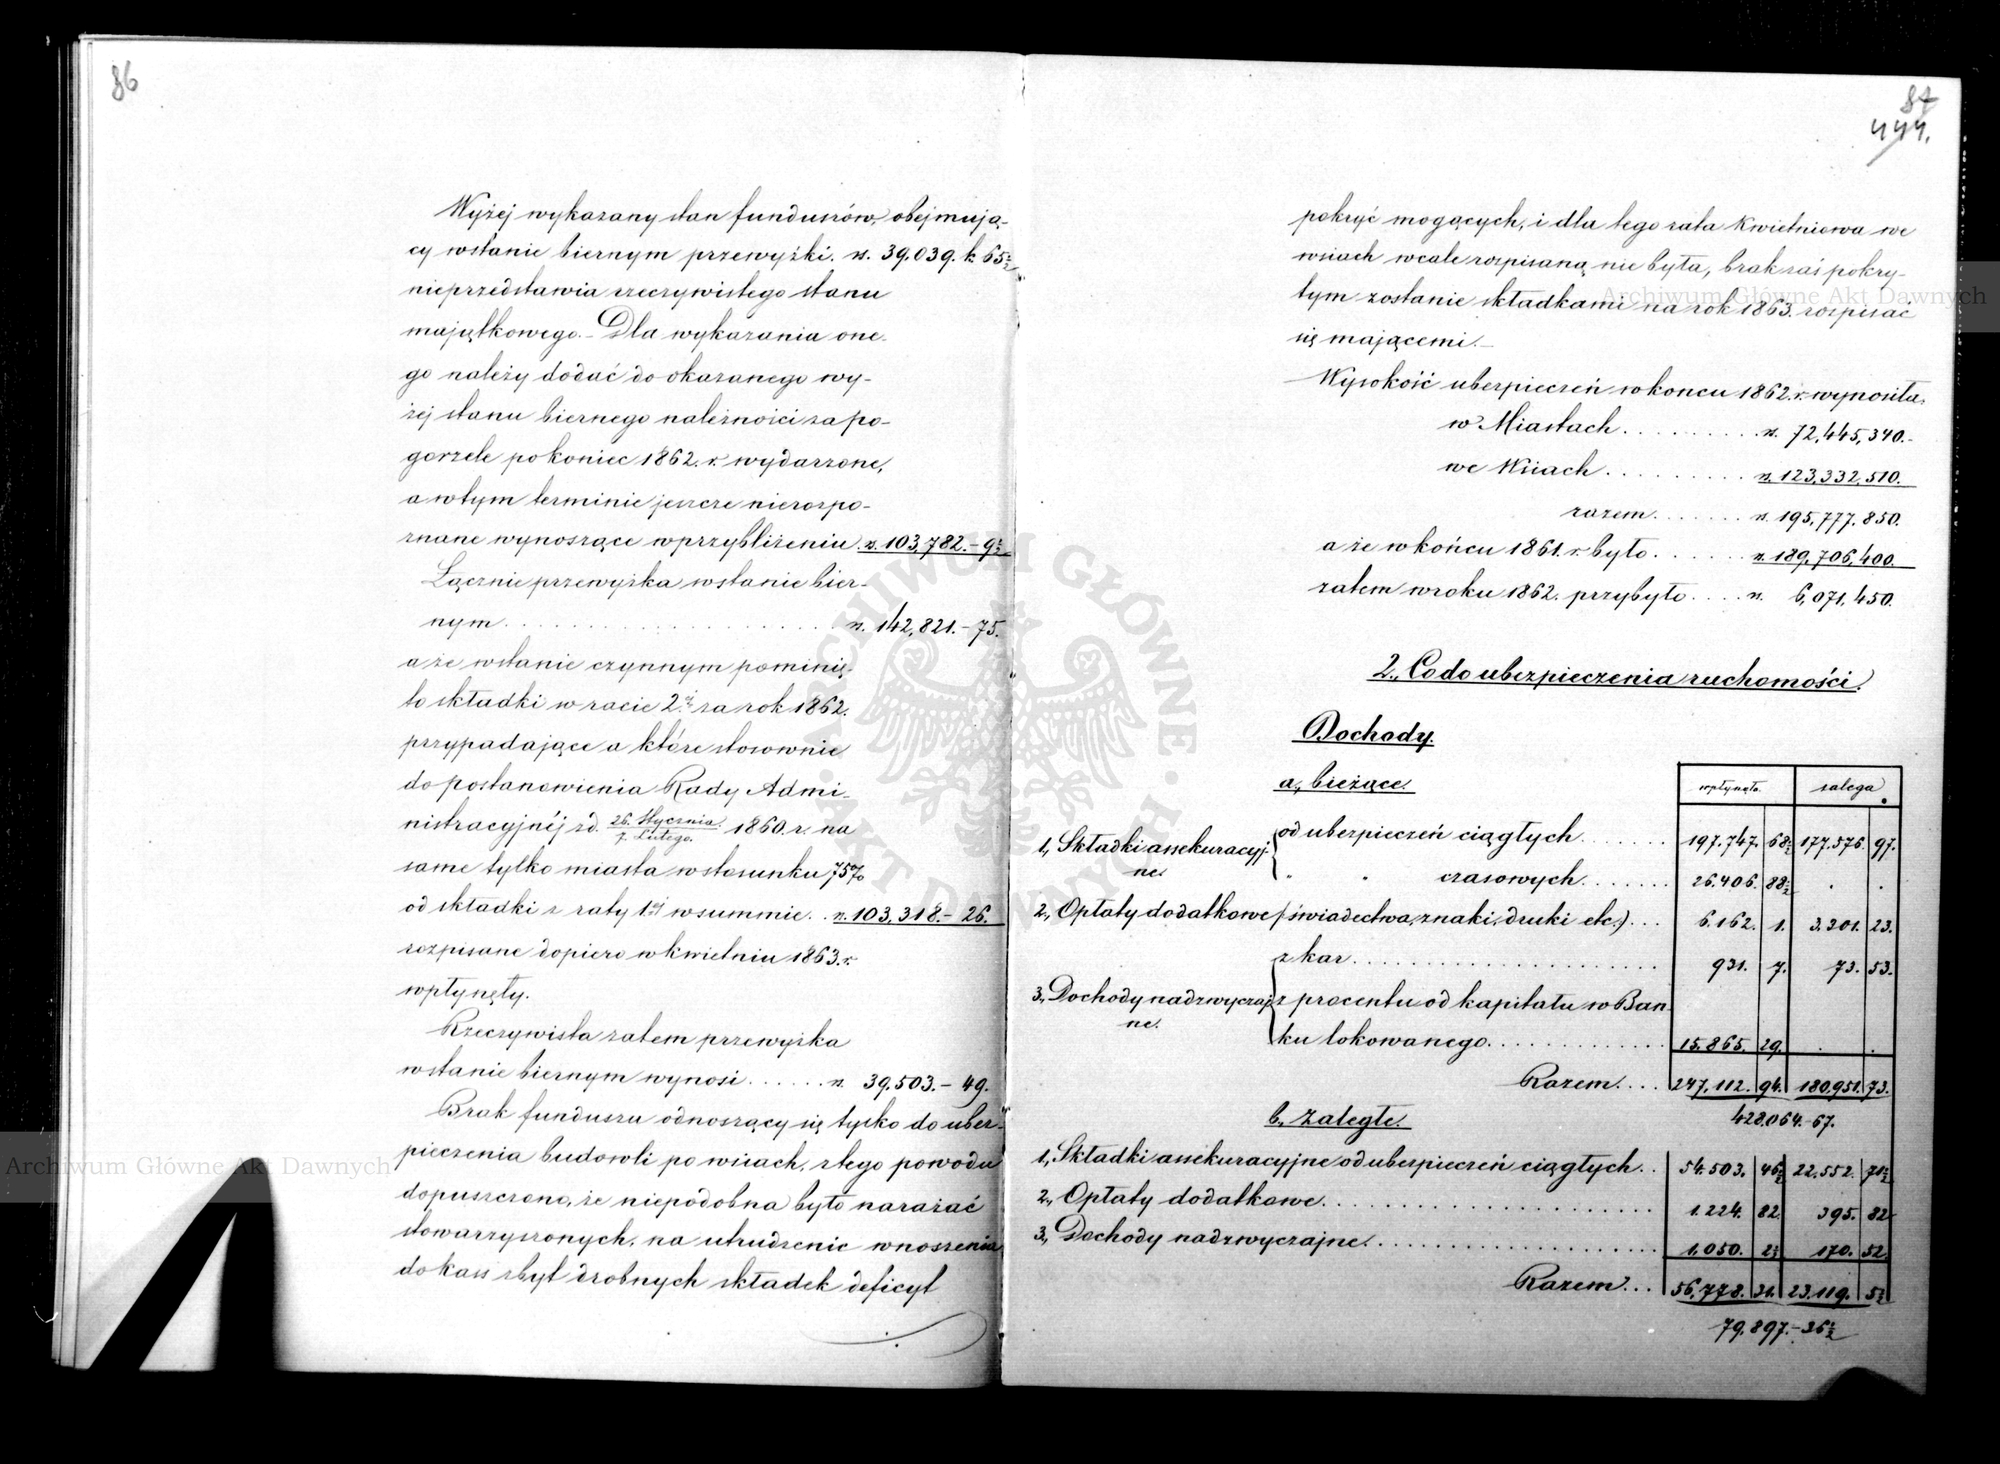 86
Wyżej wykazany stan funduszów, obejmują-
cy wstanie biernym przewyżki. rs. 39.039. k. 65½
nieprzedstawia rzeczywistego stanu
majątkowego. – Dla wykazania one-
go należy dodać do okazanego wy-
żej stanu biernego należności za po-
gorzele pokoniec 1862. r. wydarzone,
a wtym terminie jeszcze nierozpo-
znane wynoszące wprzybliżeniu rs. 103,782. – 9½
Łącznie przewyżka wstanie bier-
nym . . . . . rs. 142,821. – 75.
a że wstanie czynnym pominię-
to składki w racie 2ej za rok 1862.
przypadające a które stosownie
do postanowienia Rady Admi-
nistracyjnéj z d. 26. Stycznia / 7. Lutego. 1860. r. na
same tylko miasta wstosunku 75%
od składki z raty 1ej wsummie . . rs. 103,318. – 26.
rozpisane dopiero wkwietniu 1863. r.
wpłynęły.
Rzeczywista zatem przewyżka
wstanie biernym wynosi . . . . . rs. 39,503. – 49.
Brak funduszu odnoszący się tylko do ubez-
pieczenia budowli po wsiach, z tego powodu
dopuszczono, że niepodobna było narażać
stowarzyszonych, na utrudzenie wnoszenia
do kass zbyt drobnych składek deficyt
87
444.
pokryć mogących, i dla tego rata Kwietniowa we
wsiach wcale rozpisaną nie była, brak zaś pokry-
tym zostanie składkami na rok 1863. rozpisać
się mającemi. –
Wysokość ubezpieczeń wkoncu 1862. r. wynosiła.
w Miastach . . . . . rs. 72,445,340. –
we Wsiach . . . . . rs. 123,332,510.
razem . . . . . rs. 195,777,850.
a że wkońcu 1861. r. było . . . . . rs. 189,706,400.
zatem wroku 1862. przybyło . . . . rs. 6,071,450.
2., Co do ubezpieczenia ruchomości.
Dochody.
a., bieżące.
wpłynęło. zalega.
1., Składki assekuracyj- ne. od ubezpieczeń ciągłych . . . . . 197.747. 68½ 177.576. 97.
" " czasowych . . . . . 26.406. 88½ . .
2., Opłaty dodatkowe (świadectwa, znaki, druki etc.) . . . 6.162. 1. 3.301. 23.
z kar . . . . . 931. 7. 73. 53.
3., Dochody nadzwyczaj- ne. z procentu od kapitału w Ban-
ku lokowanego . . . . . 15.865. 29. . .
Razem . . . . 247.112. 94. 180.951. 73.
428.064. – 67.
b. zaległe.
1., Składki assekuracyjne od ubezpieczeń ciągłych . . 54.503. 46½ 22.552. 71½
2., Opłaty dodatkowe . . . . . 1.224. 82. 395. 82
3., Dochody nadzwyczajne . . . . . 1.050. 2½ 170. 52
Razem . . . 56.778. 31. 23.119. 5½
79.897. – 36½
Archiwum Główne Akt Dawnych
Archiwum Główne Akt Dawnych
ARCHIWUM GŁÓWNE AKT DAWNYCH